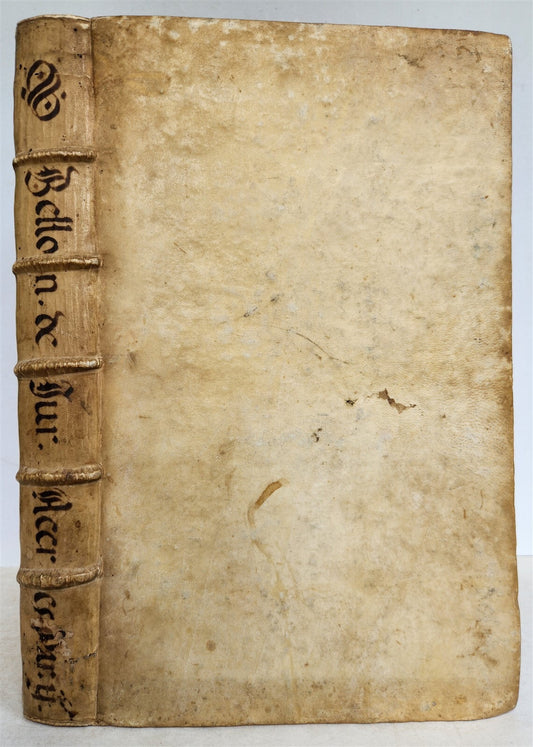 Bellon. de Jur. Accr